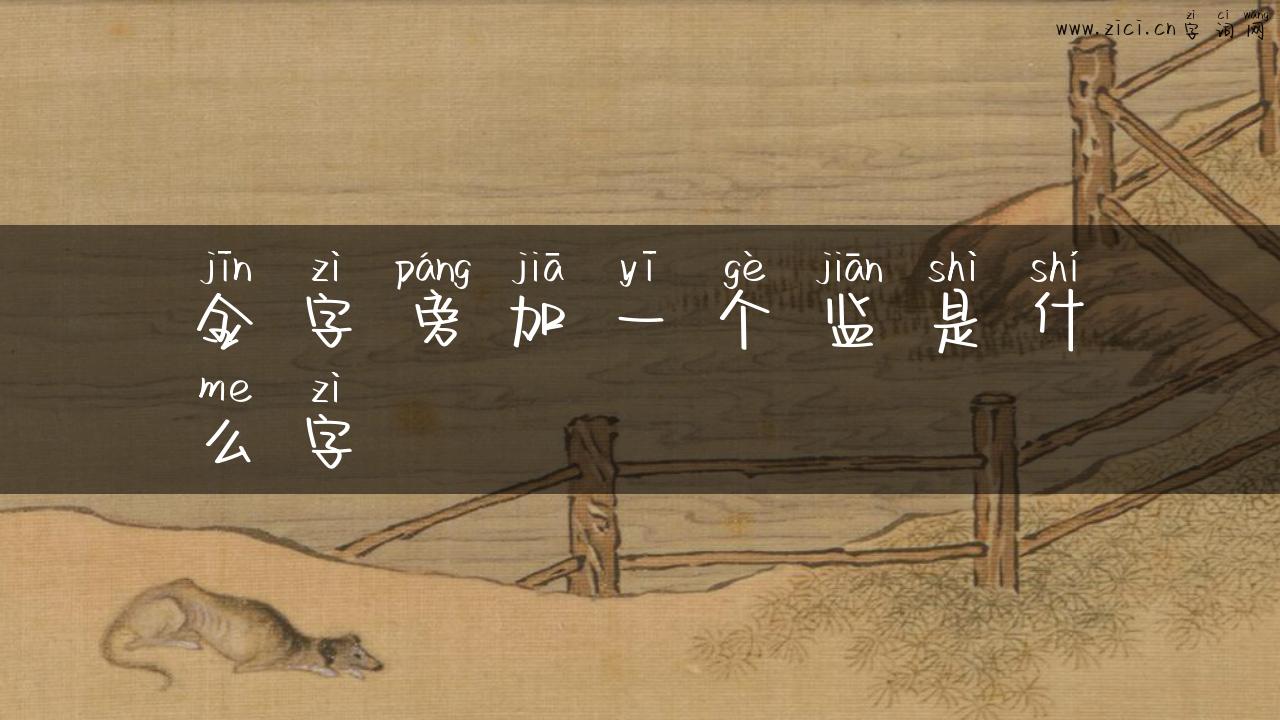 zì cí wǎng
www.zici.cn 字词网
jīn zì páng jiā yī gè jiān shì shí
金字旁加一个监是什
me zì
么字